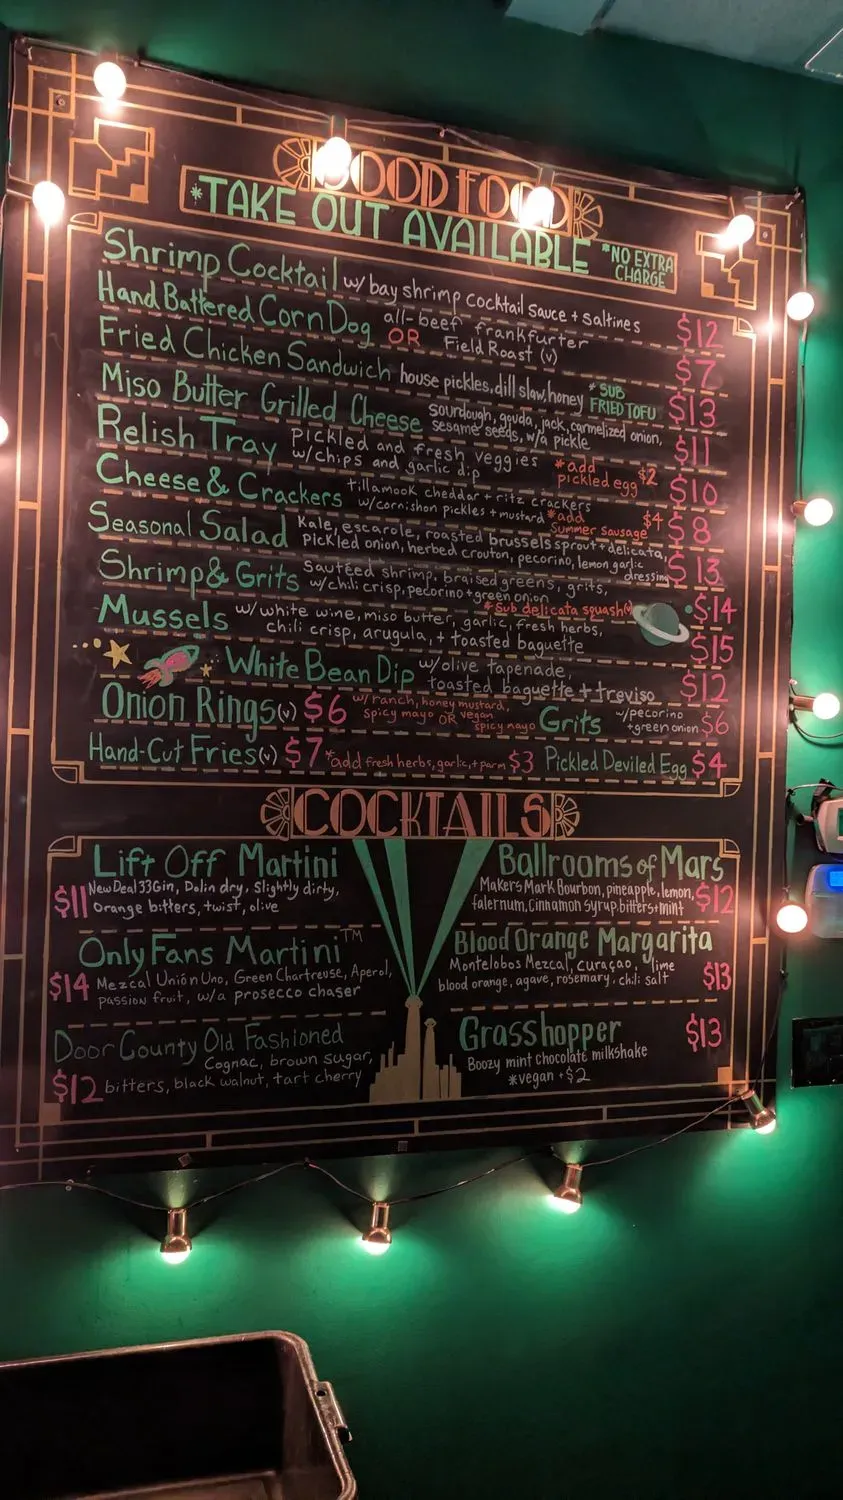 GOOD FOOD
*TAKE OUT AVAILABLE *NO EXTRA CHARGE
Shrimp Cocktail w/ bay shrimp cocktail sauce + saltines $12
Hand Battered Corn Dog all-beef frankfurter
OR Field Roast (v) $7
Fried Chicken Sandwich house pickles, dill slaw, honey *SUB FRIED TOFU $13
Miso Butter Grilled Cheese sourdough, gouda, jack, carmelized onion,
sesame seeds, w/a pickle $11
Relish Tray Pickled and fresh veggies
w/chips and garlic dip *add pickled egg $2 $10
Cheese & Crackers tillamook cheddar + ritz crackers
w/cornishon pickles + mustard *add Summer Sausage $4 $8
Seasonal Salad Kale, escarole, roasted brussels sprout + delicata,
pickled onion, herbed crouton, pecorino, lemon garlic
dressing $13
Shrimp & Grits Sautéed shrimp, braised greens, grits,
w/chili crisp, pecorino + green onion
*Sub delicata squash(v) $14
Mussels w/white wine, miso butter, garlic, fresh herbs,
chili crisp, arugula, + toasted baguette $15
White Bean Dip w/olive tapenade,
toasted baguette + treviso $12
Onion Rings (v) $6 w/ranch, honey mustard,
spicy mayo OR vegan
spicy mayo
Grits w/pecorino
+green onion $6
Hand-Cut Fries (v) $7 *add fresh herbs, garlic, + parm $3 Pickled Deviled Egg $4
COCKTAILS
Lift Off Martini
$11 New Deal 33 Gin, Dolin dry, Slightly dirty,
orange bitters, twist, olive
Ballrooms of Mars
Makers Mark Bourbon, pineapple, lemon,
falernum, Cinnamon syrup, bitters + mint $12
OnlyFans Martini™
$14 Mezcal Unión Uno, Green Chartreuse, Aperol,
passion fruit, w/a prosecco chaser
Blood Orange Margarita
Montelobos Mezcal, curaçao, lime
blood orange, agave, rosemary, chili salt $13
Door County Old Fashioned
Cognac, brown sugar,
$12 bitters, black walnut, tart cherry
Grasshopper $13
Boozy mint chocolate milkshake
*vegan +$2